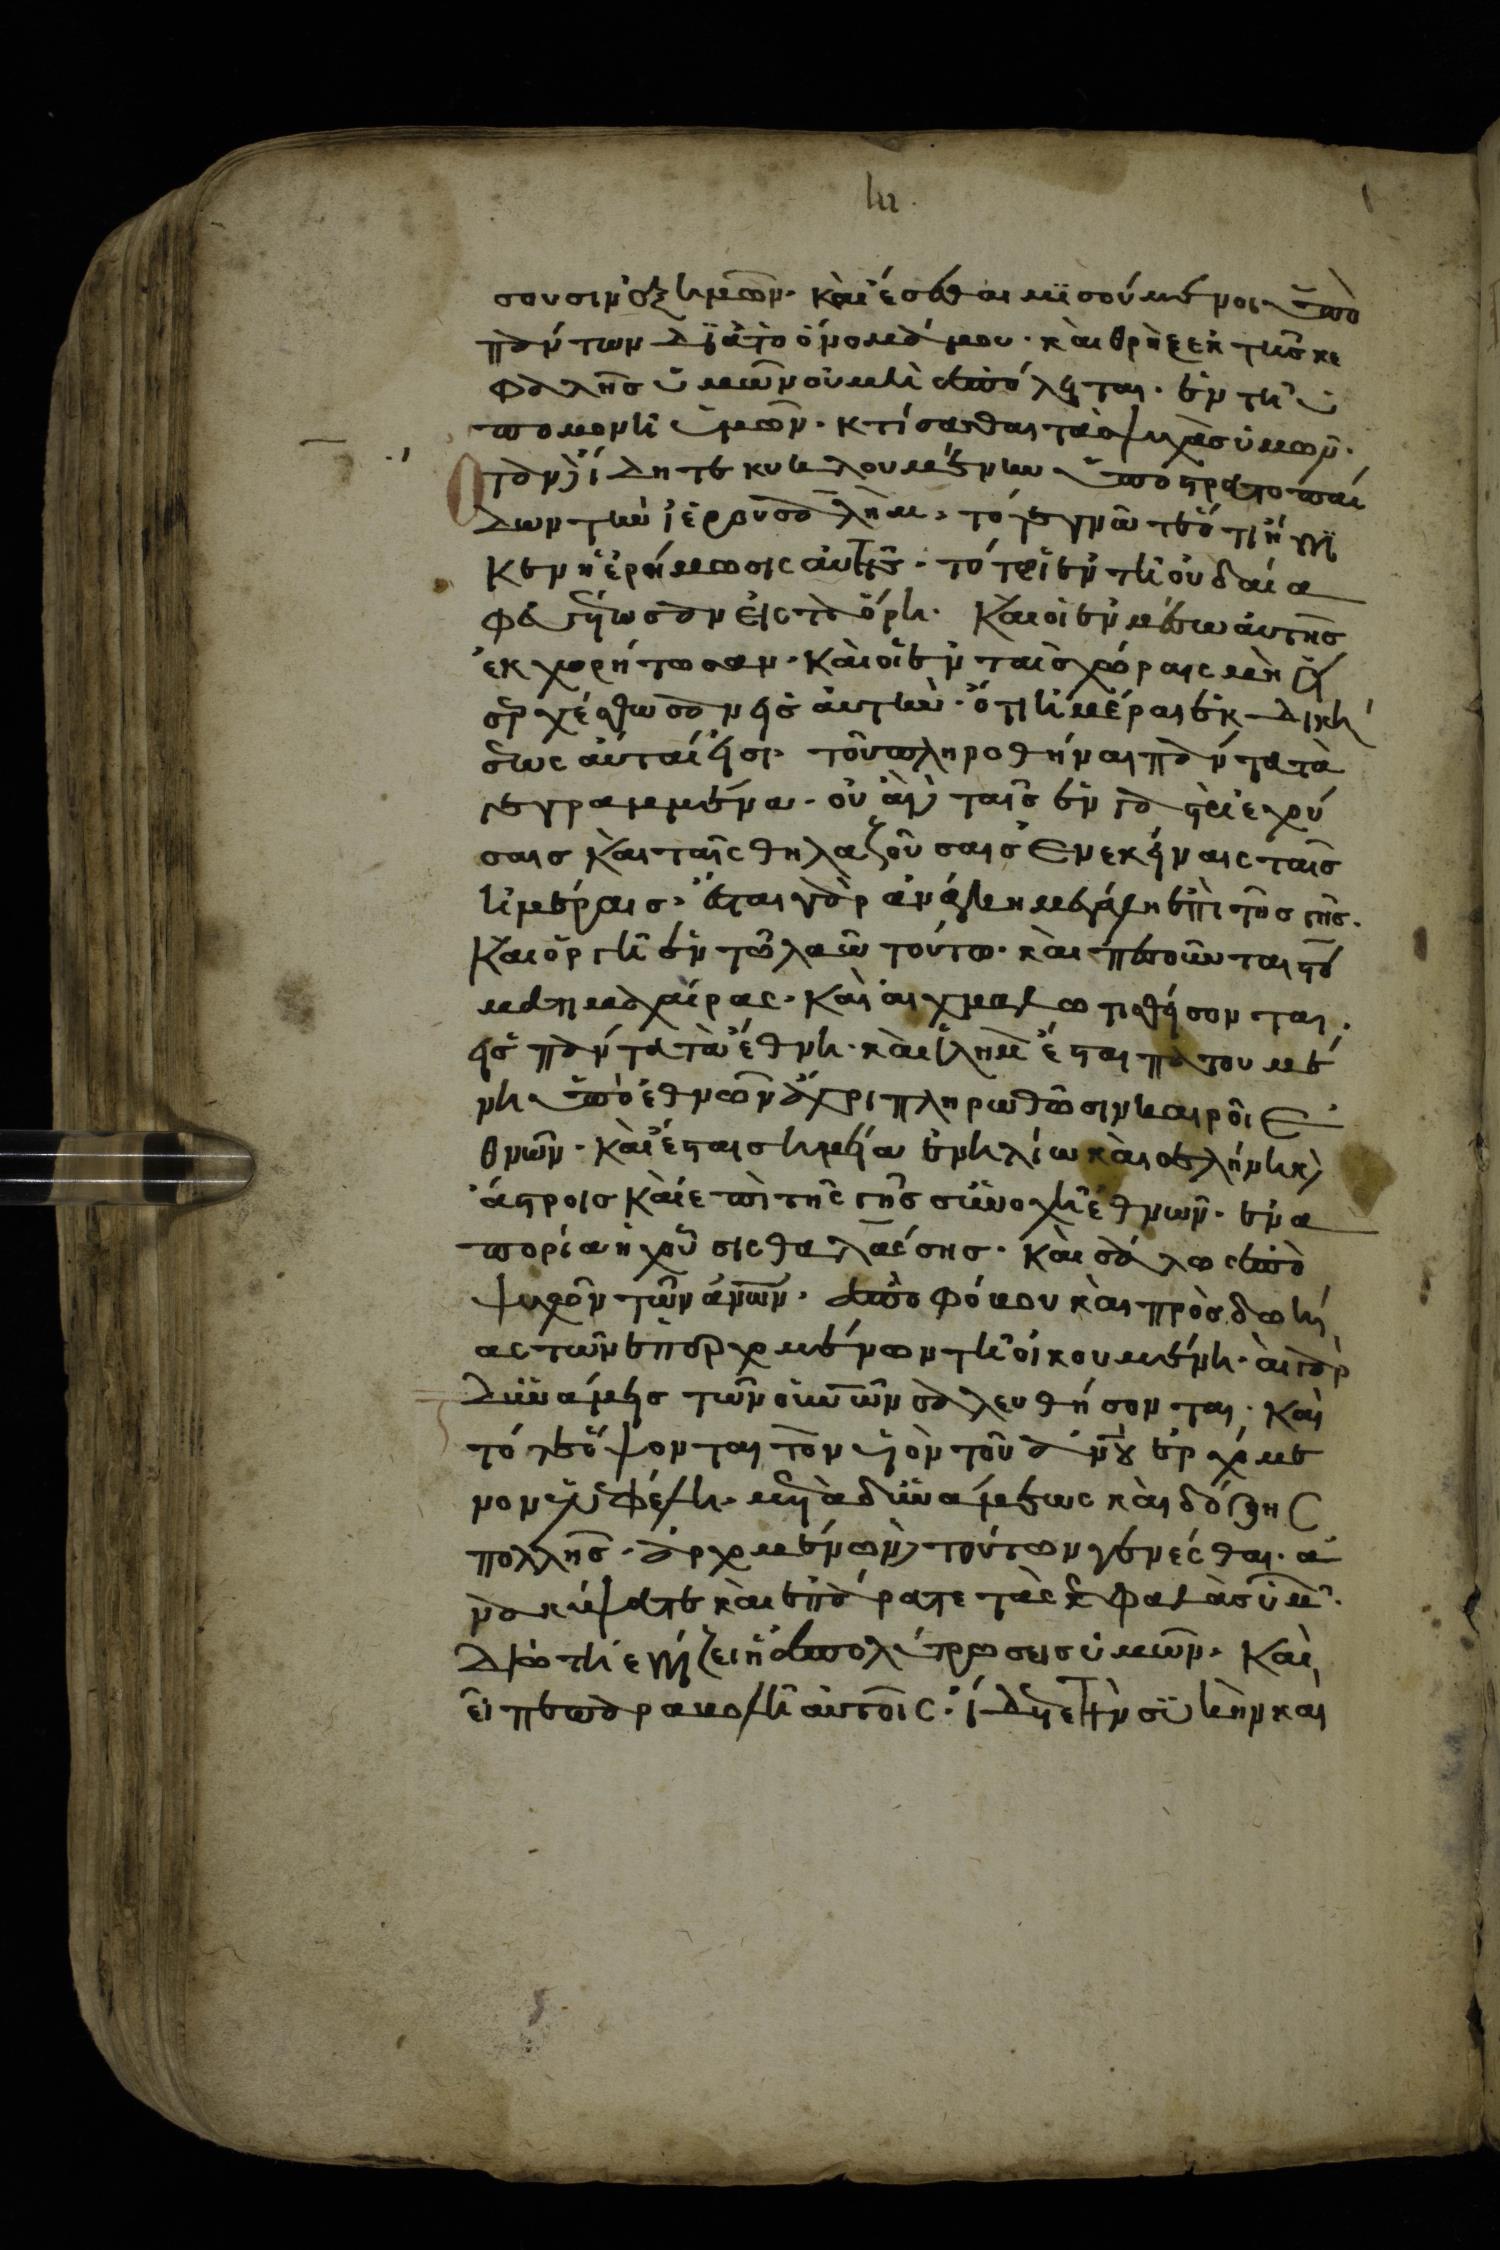 σουσιν ἐξ ὑμῶν. καὶ ἔσεσθαι μϊσούμενοι ὑπὸ
πάντων διὰ τὸ ὄνομά μου. καὶ θρὴξ ἐκ τῆς κε
φαλῆς ὑμῶν οὐ μὴ ἀπόληται. ἐν τῆ ὑ
πομονῆ ὑμῶν. κτίσασθαι τὰς ψυχὰς ὑμῶν.
Ὅταν δὲ ἴδητε κυκλουμένην ὑπὸ στρατοπαί
δων τὴν ἱερουσαλὴμ, τότε γνῶτε ὅτι ἤγγι
κεν ἡ ἐρήμωσις αὐτῆς. τότε οἱ ἐν τῆ ἰουδαία
φευγέτωσαν εἰς τὰ ὄρη. Καὶ οἱ ἐν μέσω αὐτῆς
ἐκχωρήτωσαν. καὶ οἱ ἐν ταῖς χώραις μὴ εἰ
σερχέσθωσαν εἰς αὐτὴν. ὅτι ἡμέραι ἐκδική
σεως αὗταί εἰσι. τοῦ πληροθῆναι πάντα τὰ
γεγραμμένα. οὐαὶ δὲ ταῖς ἐν γαστρὶ ἐχού
σαις καὶ ταῖς θηλαζούσαις ἐν ἐκείναις ταῖς
ἡμέραις. ἔσται γὰρ ἀνάγκη μεγάλη ἐπὶ τῆς γῆς.
Καὶ ὀργὴ ἐν τῶ λαῶ τούτω. καὶ πεσοῦνται στό
ματι μαχαίρας. Καὶ αἰχμαλωτισθήσονται
εἰς πάντα τὰ ἔθνη. καὶ ἱλημ ἔσται πατουμέ
νη ὑπὸ ἐθνῶν ἄχρι πληρωθῶσιν καιροὶ ἐ
θνῶν. καὶ ἔσται σημεία ἐν ἡλίω καὶ σελήνη καὶ
ἄστροις καὶ ἐπὶ τῆς γῆς συνοχὴ ἐθνῶν. ἐν ἀ
πορία ἠχούσις θαλάσσης. καὶ σάλω ἀπὸ
ψυχῶν τῶν ἀνων. ἀπὸ φόβου καὶ προσδωκί
ας τῶν ἐπερχομένων τῆ οἰκουμένη. αἱ γὰρ
δυνάμεις τῶν οὐνων σαλευθήσονται. Καὶ
τότε ὄψονται τὸν υἱὸν τοῦ ἀνου ἐρχόμε
νον ἐν νεφέλη. μετὰ δυνάμεως καὶ δόξης
πολλῆς. ἀρχομένων δὲ τούτων γενέσθαι. ἀ
νακύψατε καὶ ἐπάρατε τὰς κεφαλὰς ὑμῶν.
διότι ἐγγίζει ἡ ἀπολύτρωσεις ὑμῶν. Καὶ
εἶπε παραβολὴ αὐτοῖς. ἴδετε τὴν συκὴν καὶ